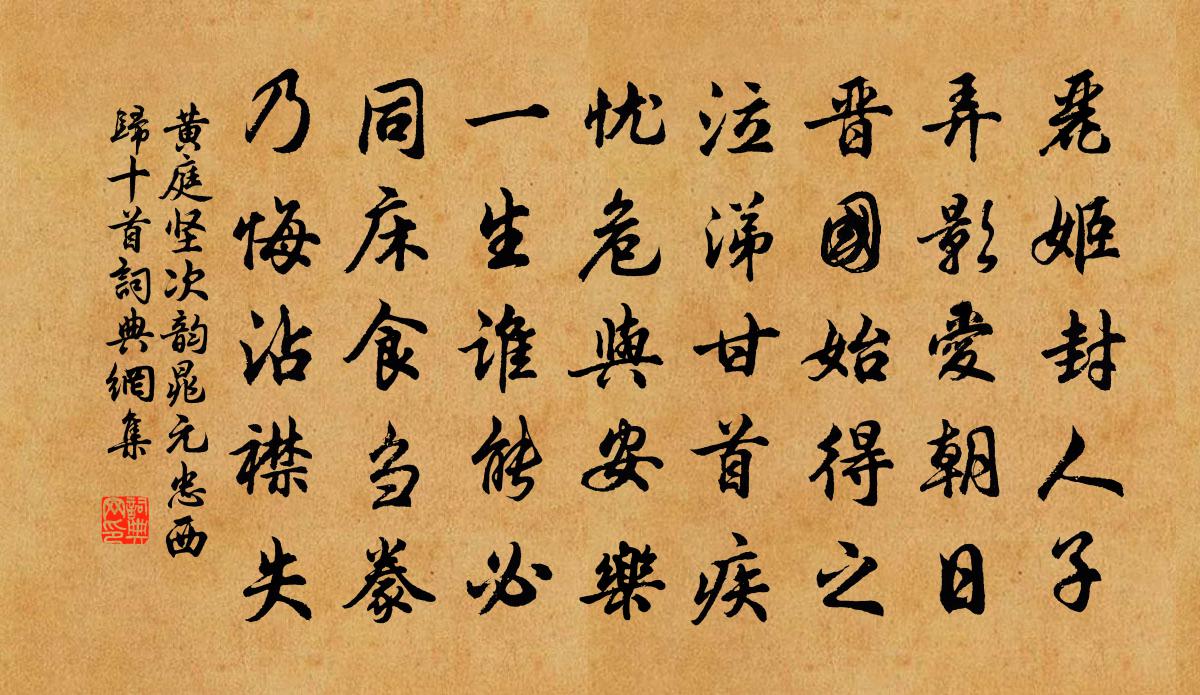 麗姬封人子
弄影愛朝日
晋國始得之
泣涕甘首疾
忧危與安樂
一生谁能必
同床食刍豢
乃悔沾襟失
黄庭坚次韵晁元忠西
歸十首詞典網集
詞典
网印